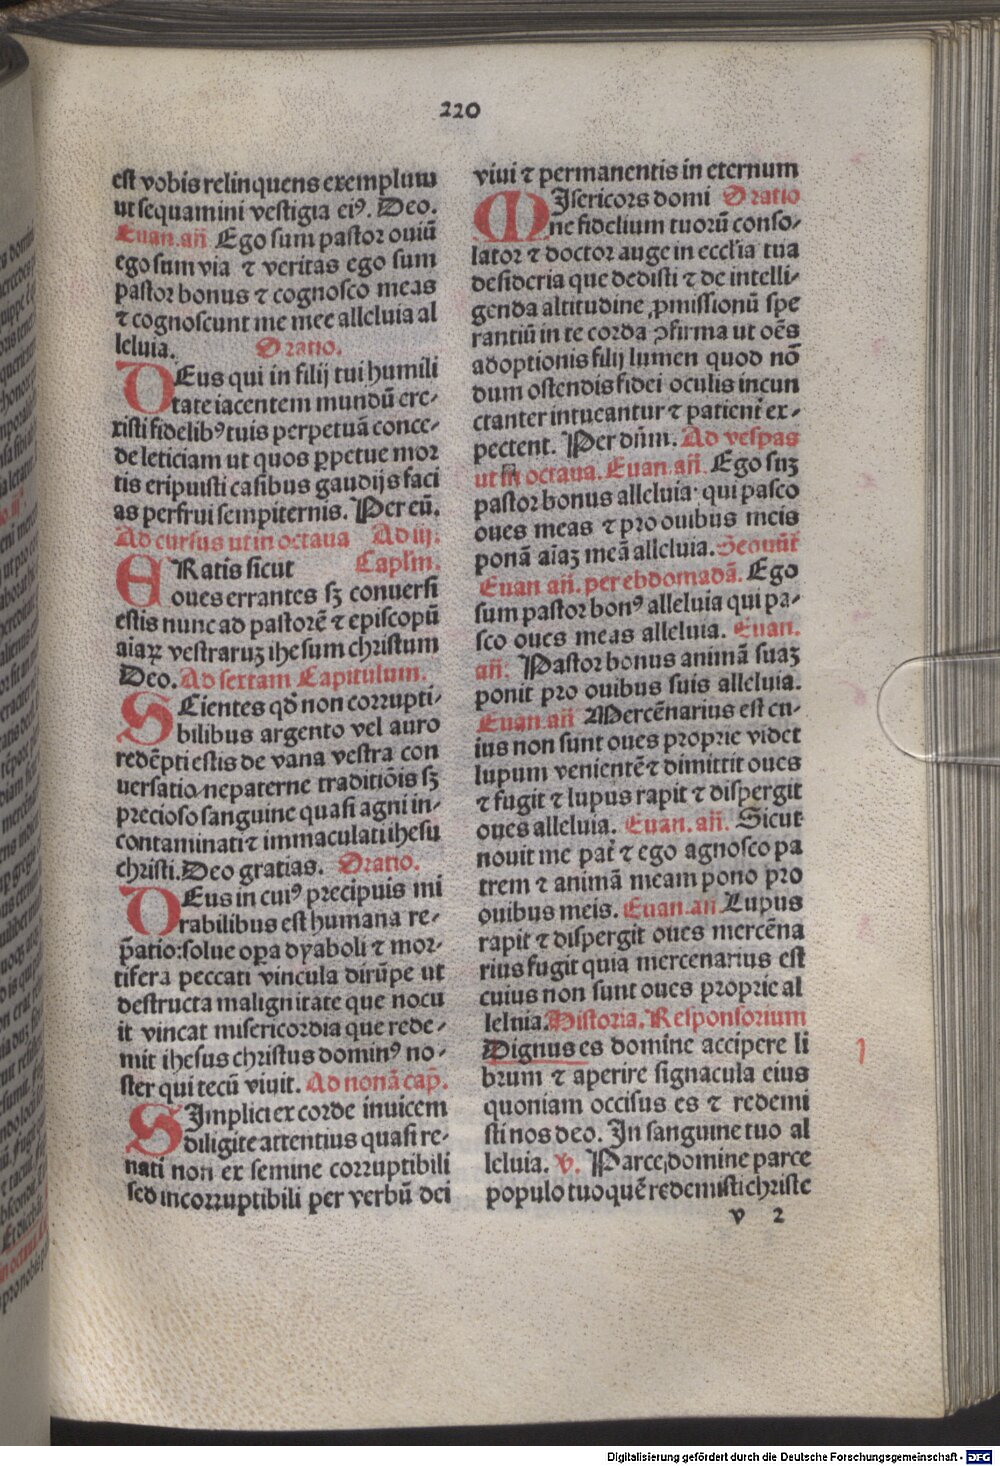 220
est vobis relinquens exemplum
ut sequamini vestigia eiꝰ. Deo.
Euan. añ Ego sum pastor ouiū
ego sum via ⁊ veritas ego sum
pastor bonus ⁊ cognosco meas
⁊ cognoscunt me mee alleluia al
leluia. Oratio.
DEus qui in filij tui humili
tate iacentem mundū ere-
xisti fidelibꝰ tuis perpetuā conce-
de leticiam ut quos ꝑpetue mor
tis eripuisti casibus gaudijs faci
as perfrui sempiternis. Per eū.
Ad cursus ut in octaua Ad iij.
ERatis sicut Caplm̄.
oues errantes sꝫ conuersi
estis nunc ad pastorē ⁊ episcopū
aiaꝝ vestraruꝫ ihesum christum
Deo. Ad sextam Capitulum.
SCientes qd̄ non corrupti-
bilibus argento vel auro
redēpti estis de vana vestra con
uersatio nepaterne traditiōis sꝫ
precioso sanguine quasi agni in-
contaminati ⁊ immaculati ihesu
christi. Deo gratias. Oratio.
DEus in cuiꝰ precipuis mi
rabilibus est humana re-
p̄atio: solue oꝑa dyaboli ⁊ mor-
tifera peccati vincula dirūpe ut
destructa malignitate que nocu
it vincat misericordia que rede-
mit ihesus christus dominꝰ no-
ster qui tecū viuit. Ad nonā cap̄.
SImplici ex corde inuicem
diligite attentius quasi re-
nati non ex semine corruptibili
sed incorruptibili per verbū dei
viui ⁊ permanentis in eternum
MIsericors domi Oratio
ne fidelium tuorū conso-
lator ⁊ doctor auge in eccl'ia tua
desideria que dedisti ⁊ de intelli-
genda altitudine ꝓmissionū spe
rantiū in te corda ꝯfirma ut oēs
adoptionis filij lumen quod nō
dum ostendis fidei oculis incun
ctanter intueantur ⁊ patient̄ ex-
pectent. Per dn̄m. Ad vespas
ut in octaua. Euan. añ. Ego suꝫ
pastor bonus alleluia· qui pasco
oues meas ⁊ pro ouibus meis
ponā aīaꝫ meā alleluia. Sequūt̄
Euan añ. per ebdomadā. Ego
sum pastor bonꝰ alleluia qui pa-
sco oues meas alleluia. Euan.
añ. Pastor bonus animā suaꝫ
ponit pro ouibus suis alleluia.
Euan. añ Mercēnarius est cu-
ius non sunt oues proprie videt
lupum venientē ⁊ dimittit oues
⁊ fugit ⁊ lupus rapit ⁊ dispergit
oues alleluia. Euan. añ. Sicut
nouit me pat̄ ⁊ ego agnosco pa
trem ⁊ animā meam pono pro
ouibus meis. Euan. añ Lupus
rapit ⁊ dispergit oues mercēna
rius fugit quia mercenarius est
cuius non sunt oues proprie al
leluia. Historia. Responsorium
Dignus es domine accipere li
brum ⁊ aperire signacula eius
quoniam occisus es ⁊ redemi
sti nos deo. In sanguine tuo al
leluia. V. Parce domine parce
populo tuo quē redemisti christe
v 2
Digitalisierung gefördert durch die Deutsche Forschungsgemeinschaft - DFG